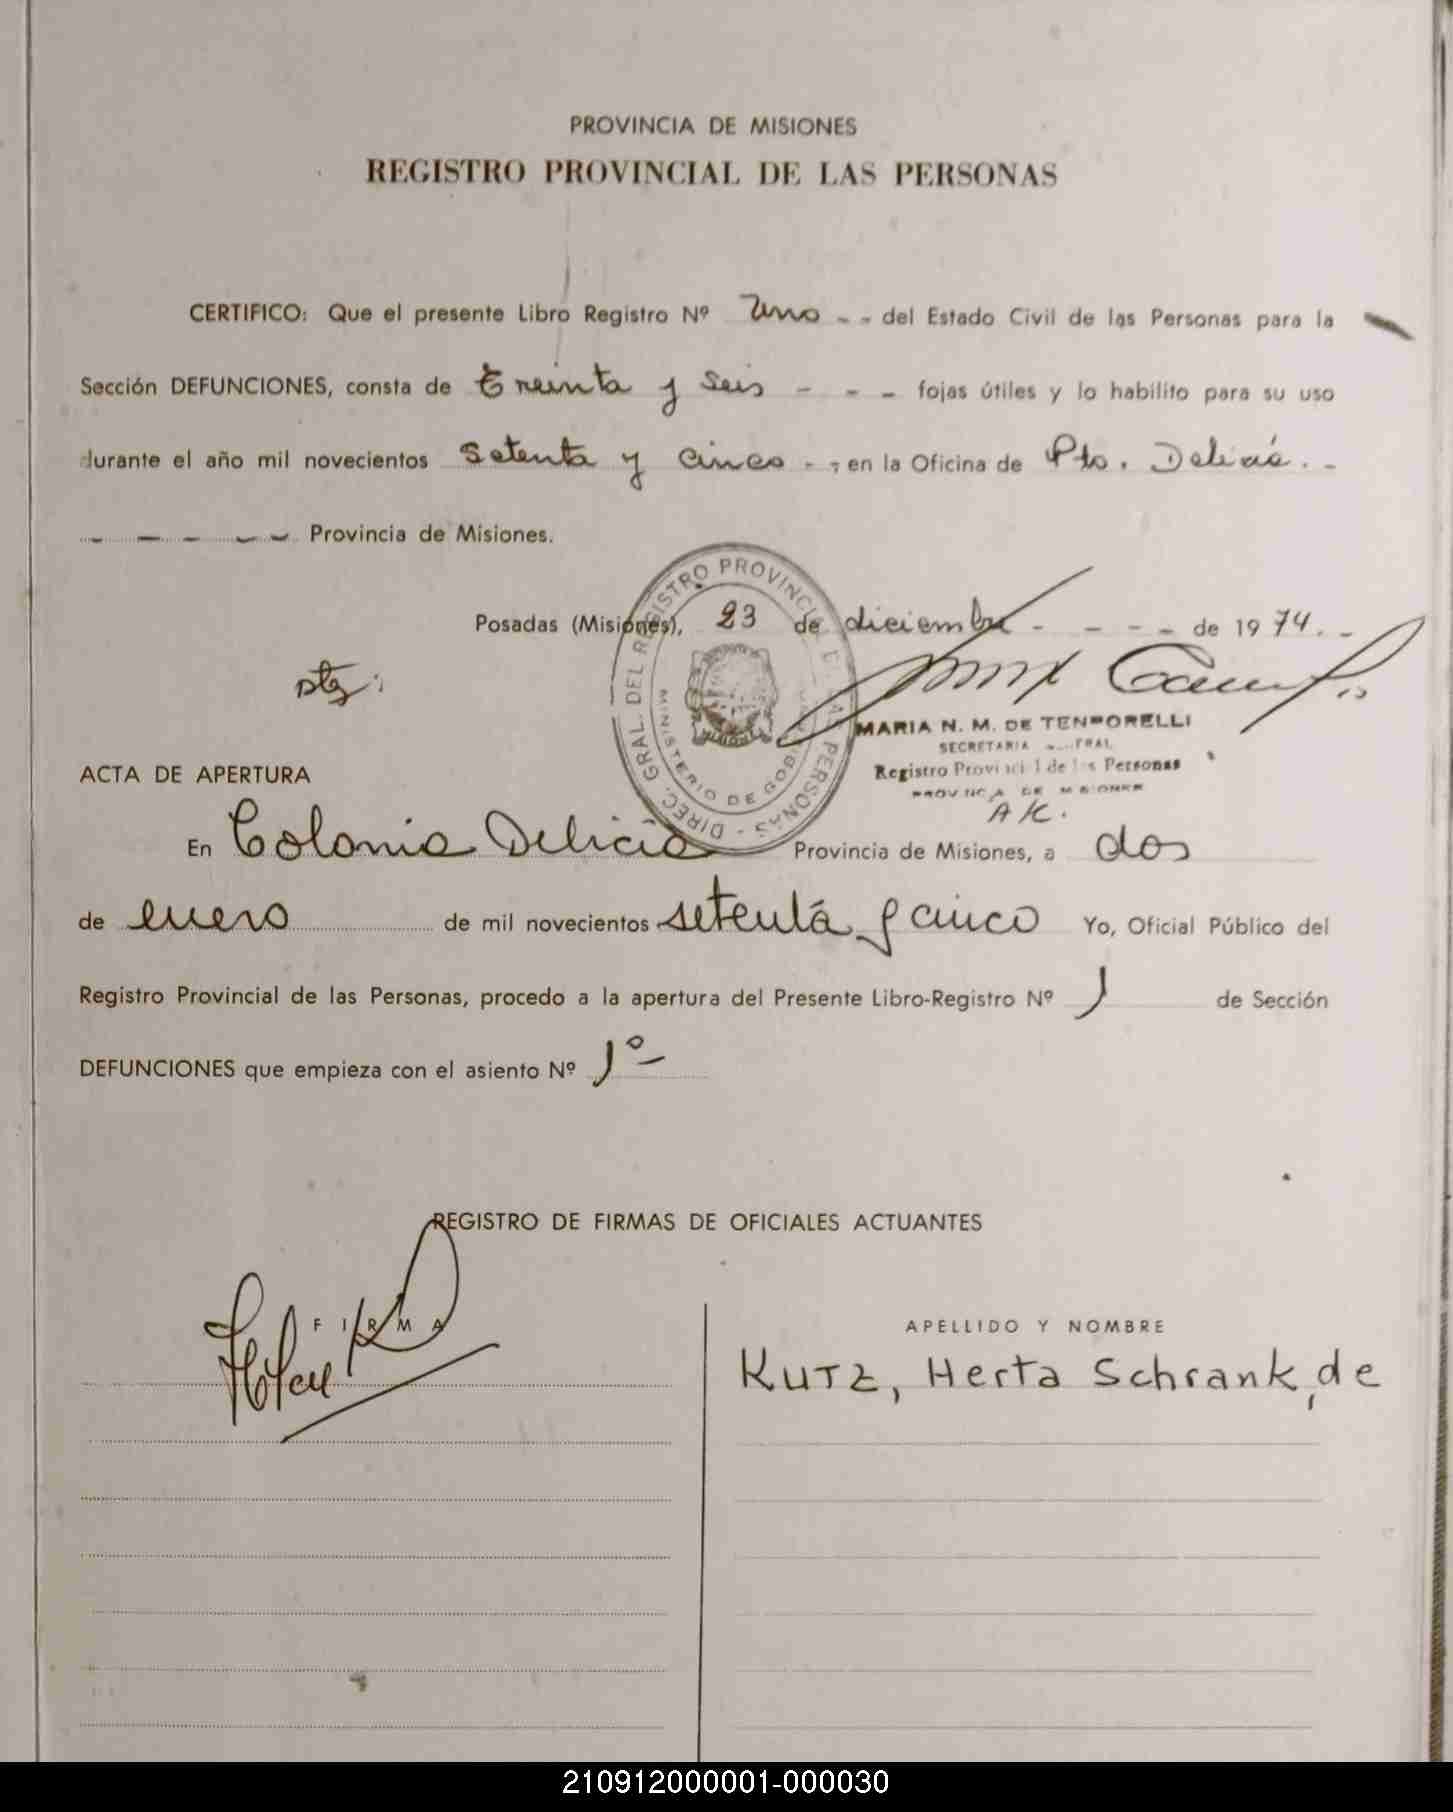 PROVINCIA DE MISIONES
REGISTRO PROVINCIAL DE LAS PERSONAS
CERTIFICO: Que el presente Libro Registro Nº Uno - - del Estado Civil de las Personas para la
Sección DEFUNCIONES, consta de treinta y seis - - - fojas útiles y lo habilito para su uso
durante el año mil novecientos setenta y cinco - -, en la Oficina de Pto. Delicia. -
- - - - - Provincia de Misiones.
Posadas (Misiones), 23 de diciembre - - - - de 1974. -
DIREC. GRAL. DEL REGISTRO PROVINCIAL DE LAS PERSONAS -
MINISTERIO DE GOBI
MARIA N. M. DE TEMPORELLI
SECRETARIA GENERAL
Registro Provincial de las Personas
PROVINCIA DE MISIONES
AK.
ACTA DE APERTURA
En Colonia Delicia Provincia de Misiones, a dos
de enero de mil novecientos setenta y cinco Yo, Oficial Público del
Registro Provincial de las Personas, procedo a la apertura del Presente Libro-Registro Nº 1 de Sección
DEFUNCIONES que empieza con el asiento Nº 1º-
REGISTRO DE FIRMAS DE OFICIALES ACTUANTES
FIRMA
APELLIDO Y NOMBRE
KUTZ, Herta Schrank, de
210912000001-000030